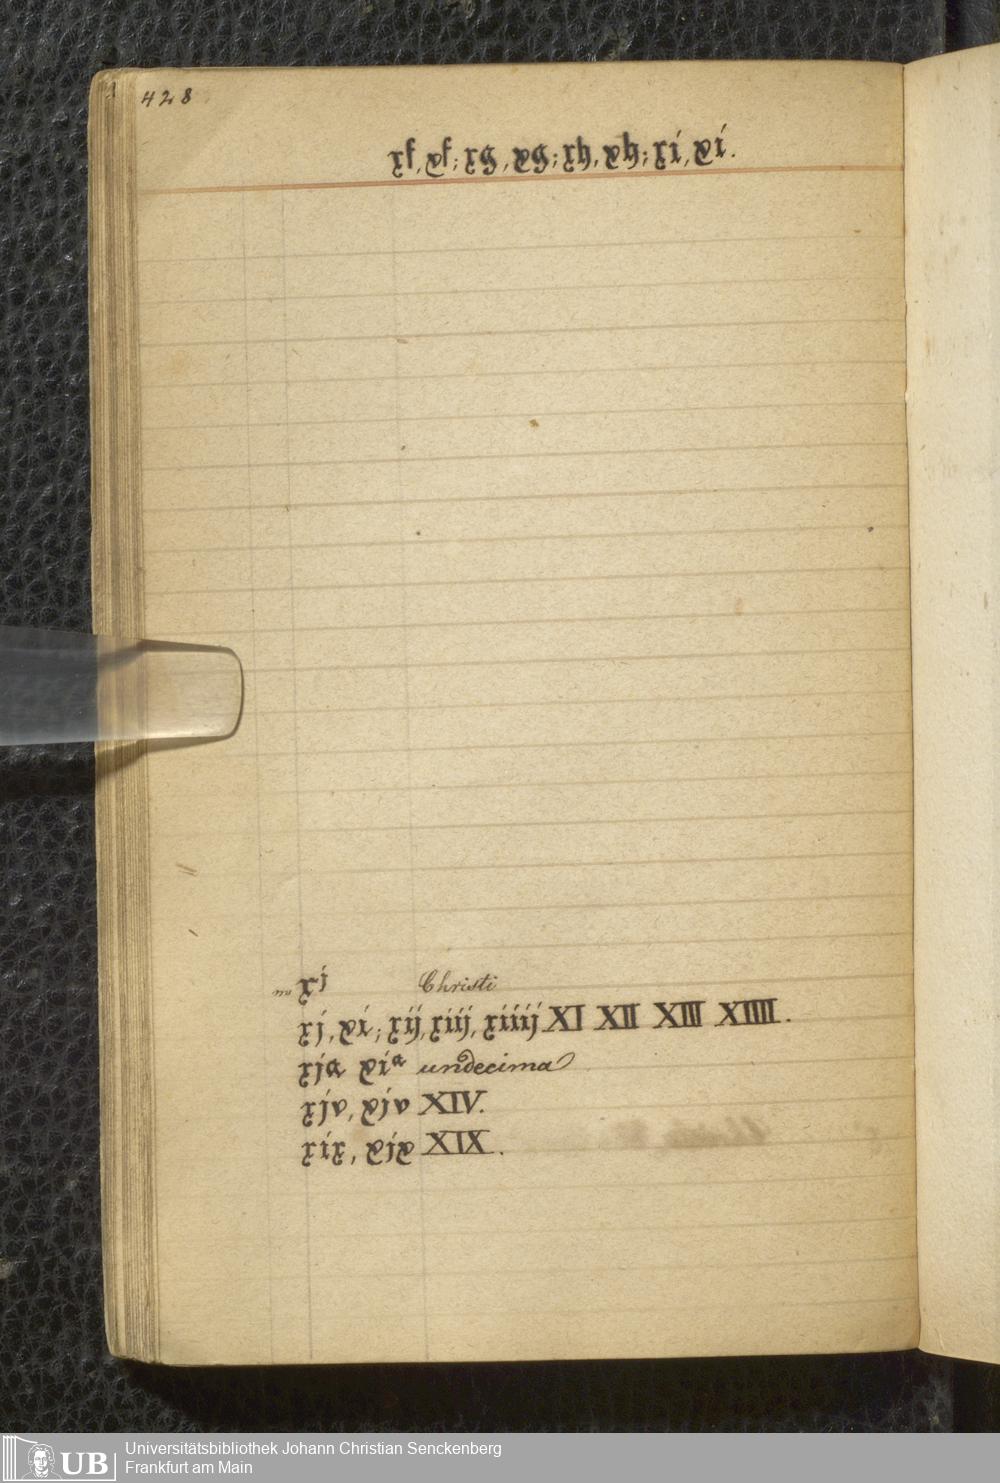 428
xf, xf; xg, xg; xh, xh; xi, xi.
xj Christi
xj, xi; xij, xiij, xiiij XI XII XIII XIIII.
xja xiª undecima
xjv, xjv XIV.
xix, xjx XIX.
UB
Universitätsbibliothek Johann Christian Senckenberg
Frankfurt am Main